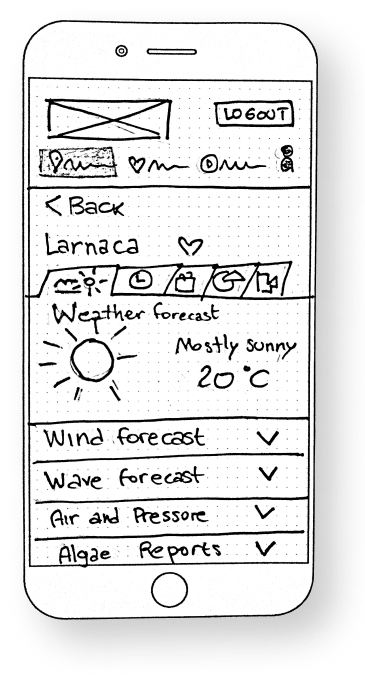 LOGOUT
< Back
Larnaca
Weather forecast
Mostly sunny
20°C
Wind forecast
Wave forecast
Air and Pressore
Algae Reports